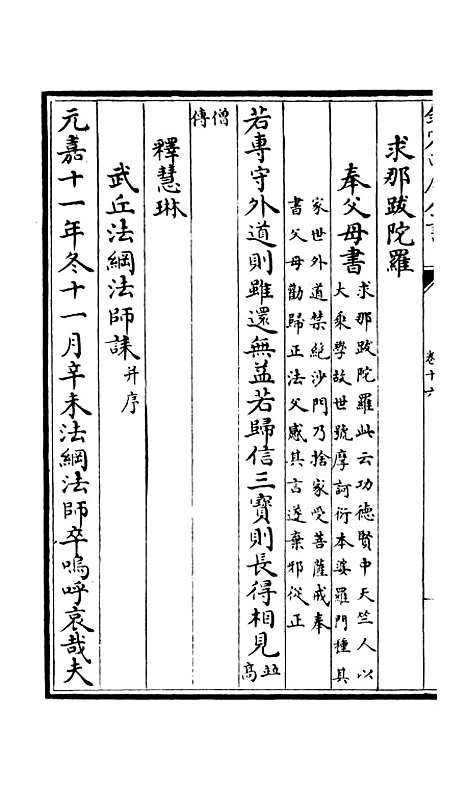 卷十六
求那跋陀羅
奉父母書
求那跋陀羅此云功德賢中天竺人以
大乘學故世號摩訶衍本婆羅門種其
家世外道禁絕沙門乃捨家受菩薩戒奉
書父母勸歸正法父感其言遂棄邪從正
若專守外道則雖還無益若歸信三寶則長得相見
並高
僧傳
釋慧琳
武丘法綱法師誄并序
元嘉十一年冬十一月辛未法綱法師卒嗚呼哀哉夫